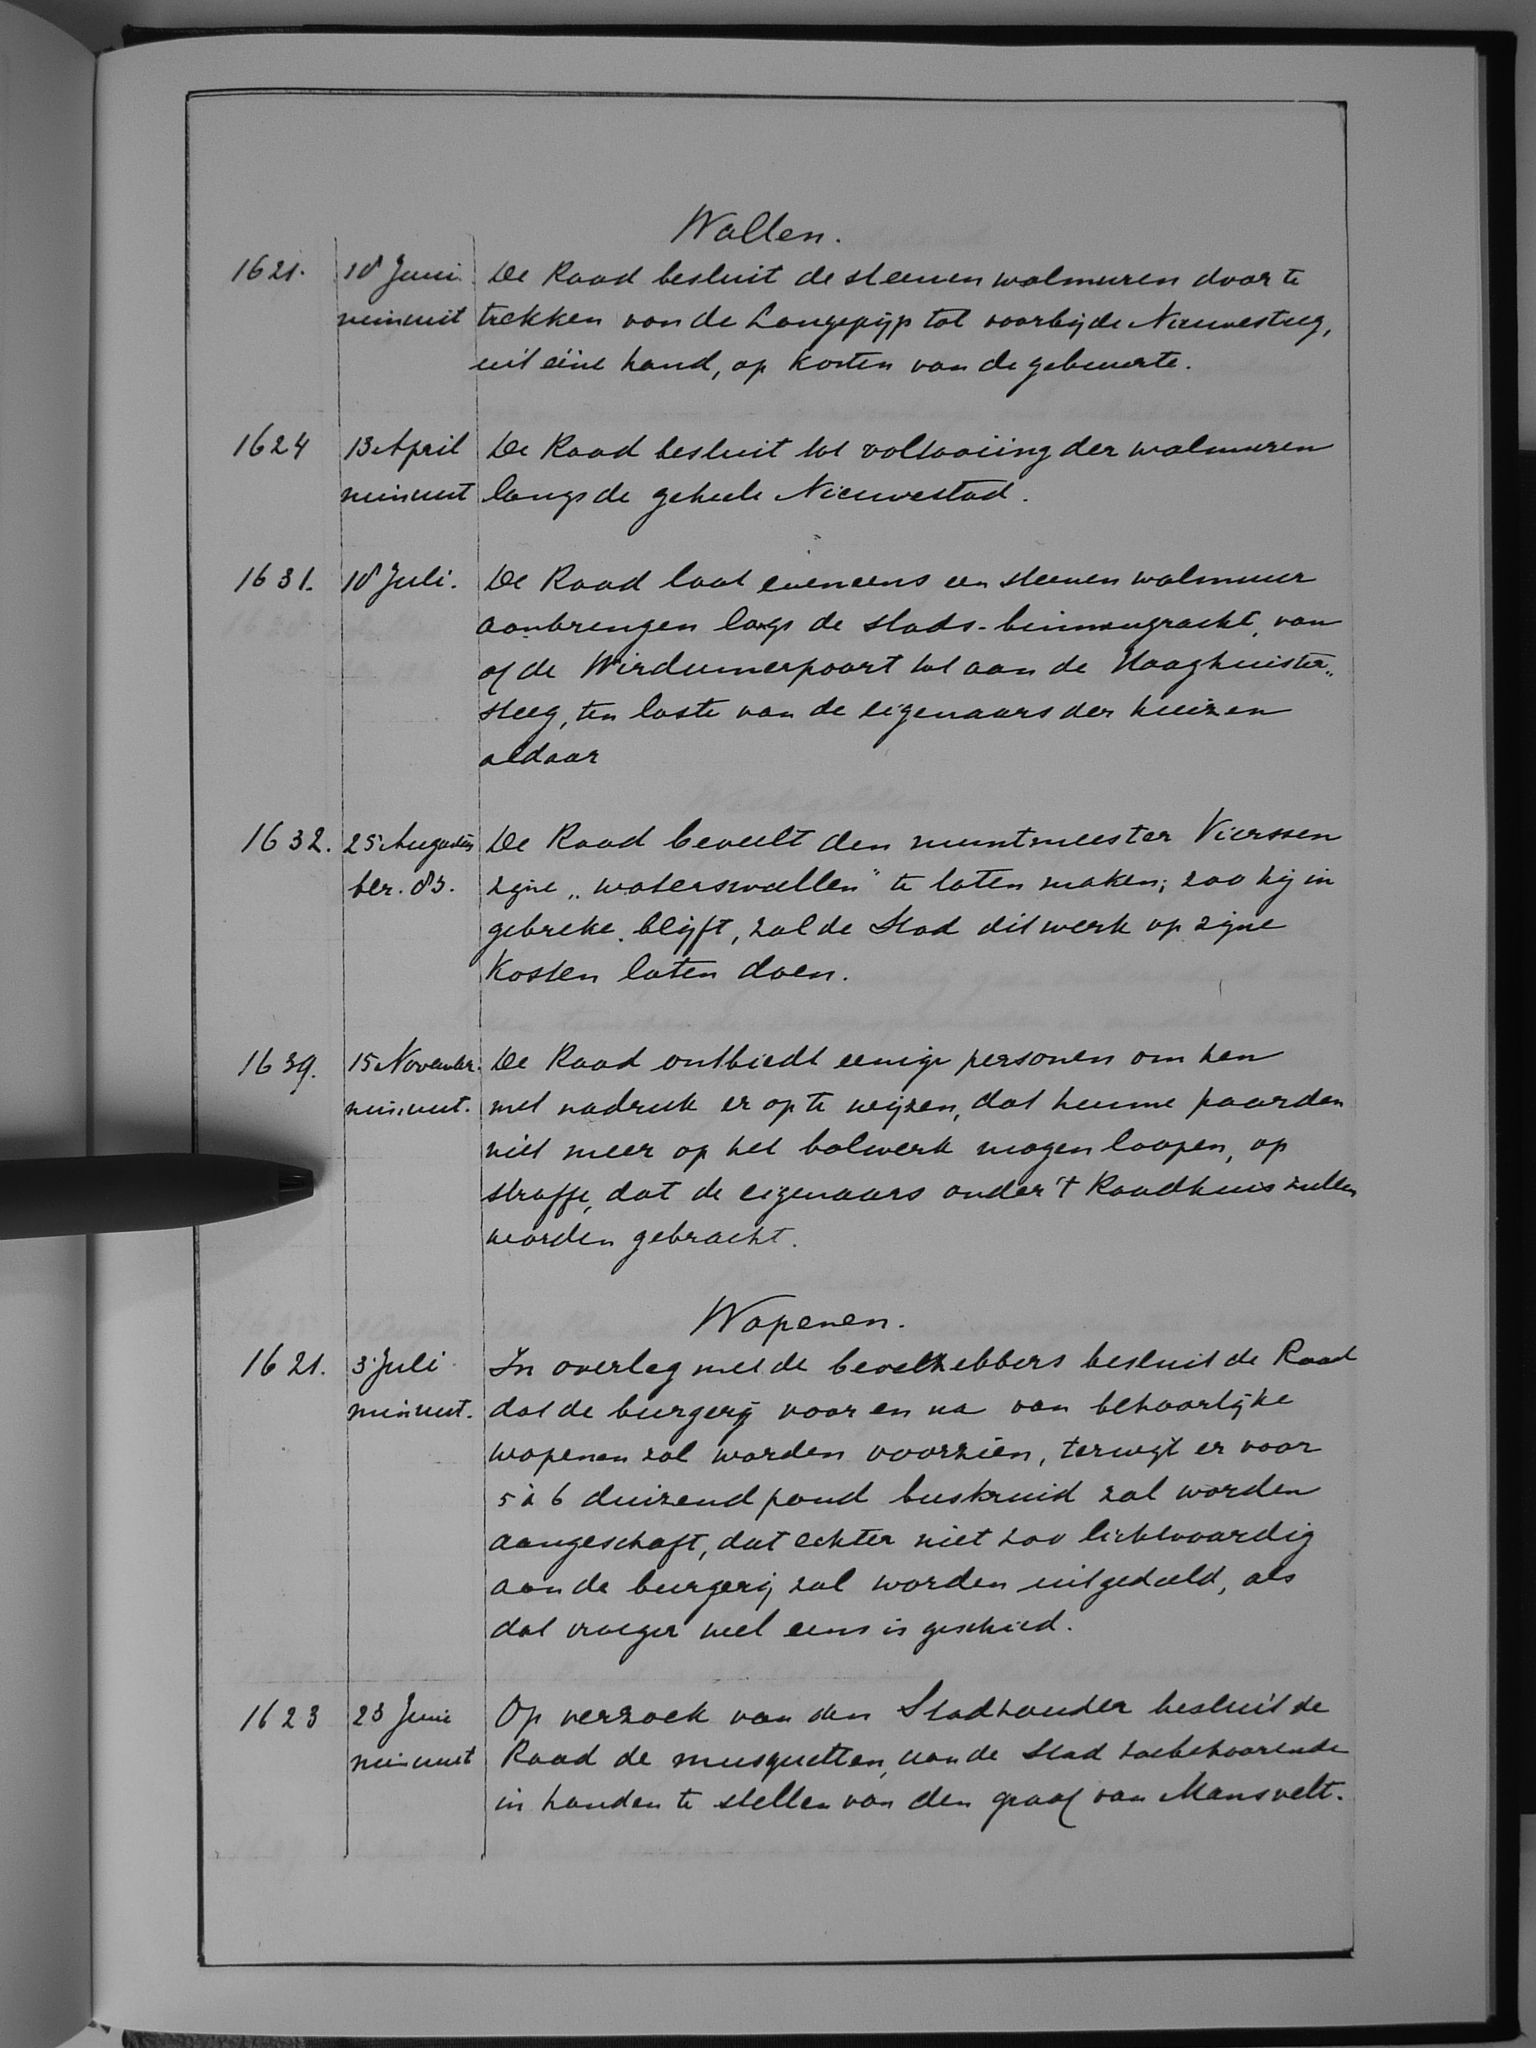 Wallen.
1621. 18 Juni. De Raad besluit de steenen walmuren door te
minuut trekken van de Langepijp tot voorbij de Nieuwesteeg,
uit ééne hand, op kosten van de gebuurte.
1624 13 April De Raad besluit tot voltooiing der walmuren
minuut langs de geheele Nieuwestad.
1631. 18 Juli. De Raad laat eveneens een steenen walmuur
aanbrengen langs de stads-binnengracht, van
af de Wirdumerpoort tot aan de Haaghuister„
steeg, ten laste van de eigenaars der huizen
aldaar
1632. 25 Augustus De Raad beveelt den muntmeester Vierssen
ber. 83. zijne „waterswallen” te laten maken; zoo hij in
gebreke blijft, zal de Stad dit werk op zijne
kosten laten doen.
1639. 15 November. De Raad ontbiedt eenige personen om hen
minuut. met nadruk er op te wijzen, dat hunne paarden
niet meer op het bolwerk mogen loopen, op
straffe, dat de eigenaars onder 't Raadhuis zullen
worden gebracht.
Wapenen.
1621. 3 Juli In overleg met de bevelhebbers besluit de Raad
minuut. dat de burgerij voor en na van behoorlijke
wapenen zal worden voorzien, terwijl er voor
5 à 6 duizend pond buskruid zal worden
aangeschaft, dat echter niet zoo lichtvaardig
aan de burgerij zal worden uitgedeeld, als
dat vroeger wel eens is geschied.
1623 23 Juni Op verzoek van den Stadhouder besluit de
minuut Raad de musquetten, aan de Stad toebehoorende
in handen te stellen van den graaf van Mansvelt.